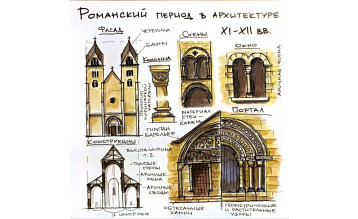 Романский период в архитектуре
XI-XII вв.
Фасад
Черепица
Башни
Колонна
Стены
Окно
Арочная форма
Материал
стен -
камень
Портал
Тимпан
барельеф
Конструкции
Высота/ширина
1:2
- голые
стены
- арочные
окна
- арочные
своды
Отесанные
камни
Геометрические
и растительные
узоры